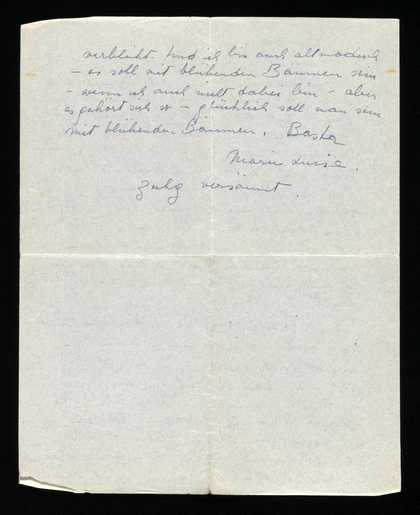 verblüht. Und ich bin auch altmodisch
– es soll mit blühenden Bäumen sein
– wenn ich auch nicht dabei bin – aber
es gehört sich so – glücklich soll man sein
mit blühenden Bäumen. Basta
Marie Luise.
versäumt.